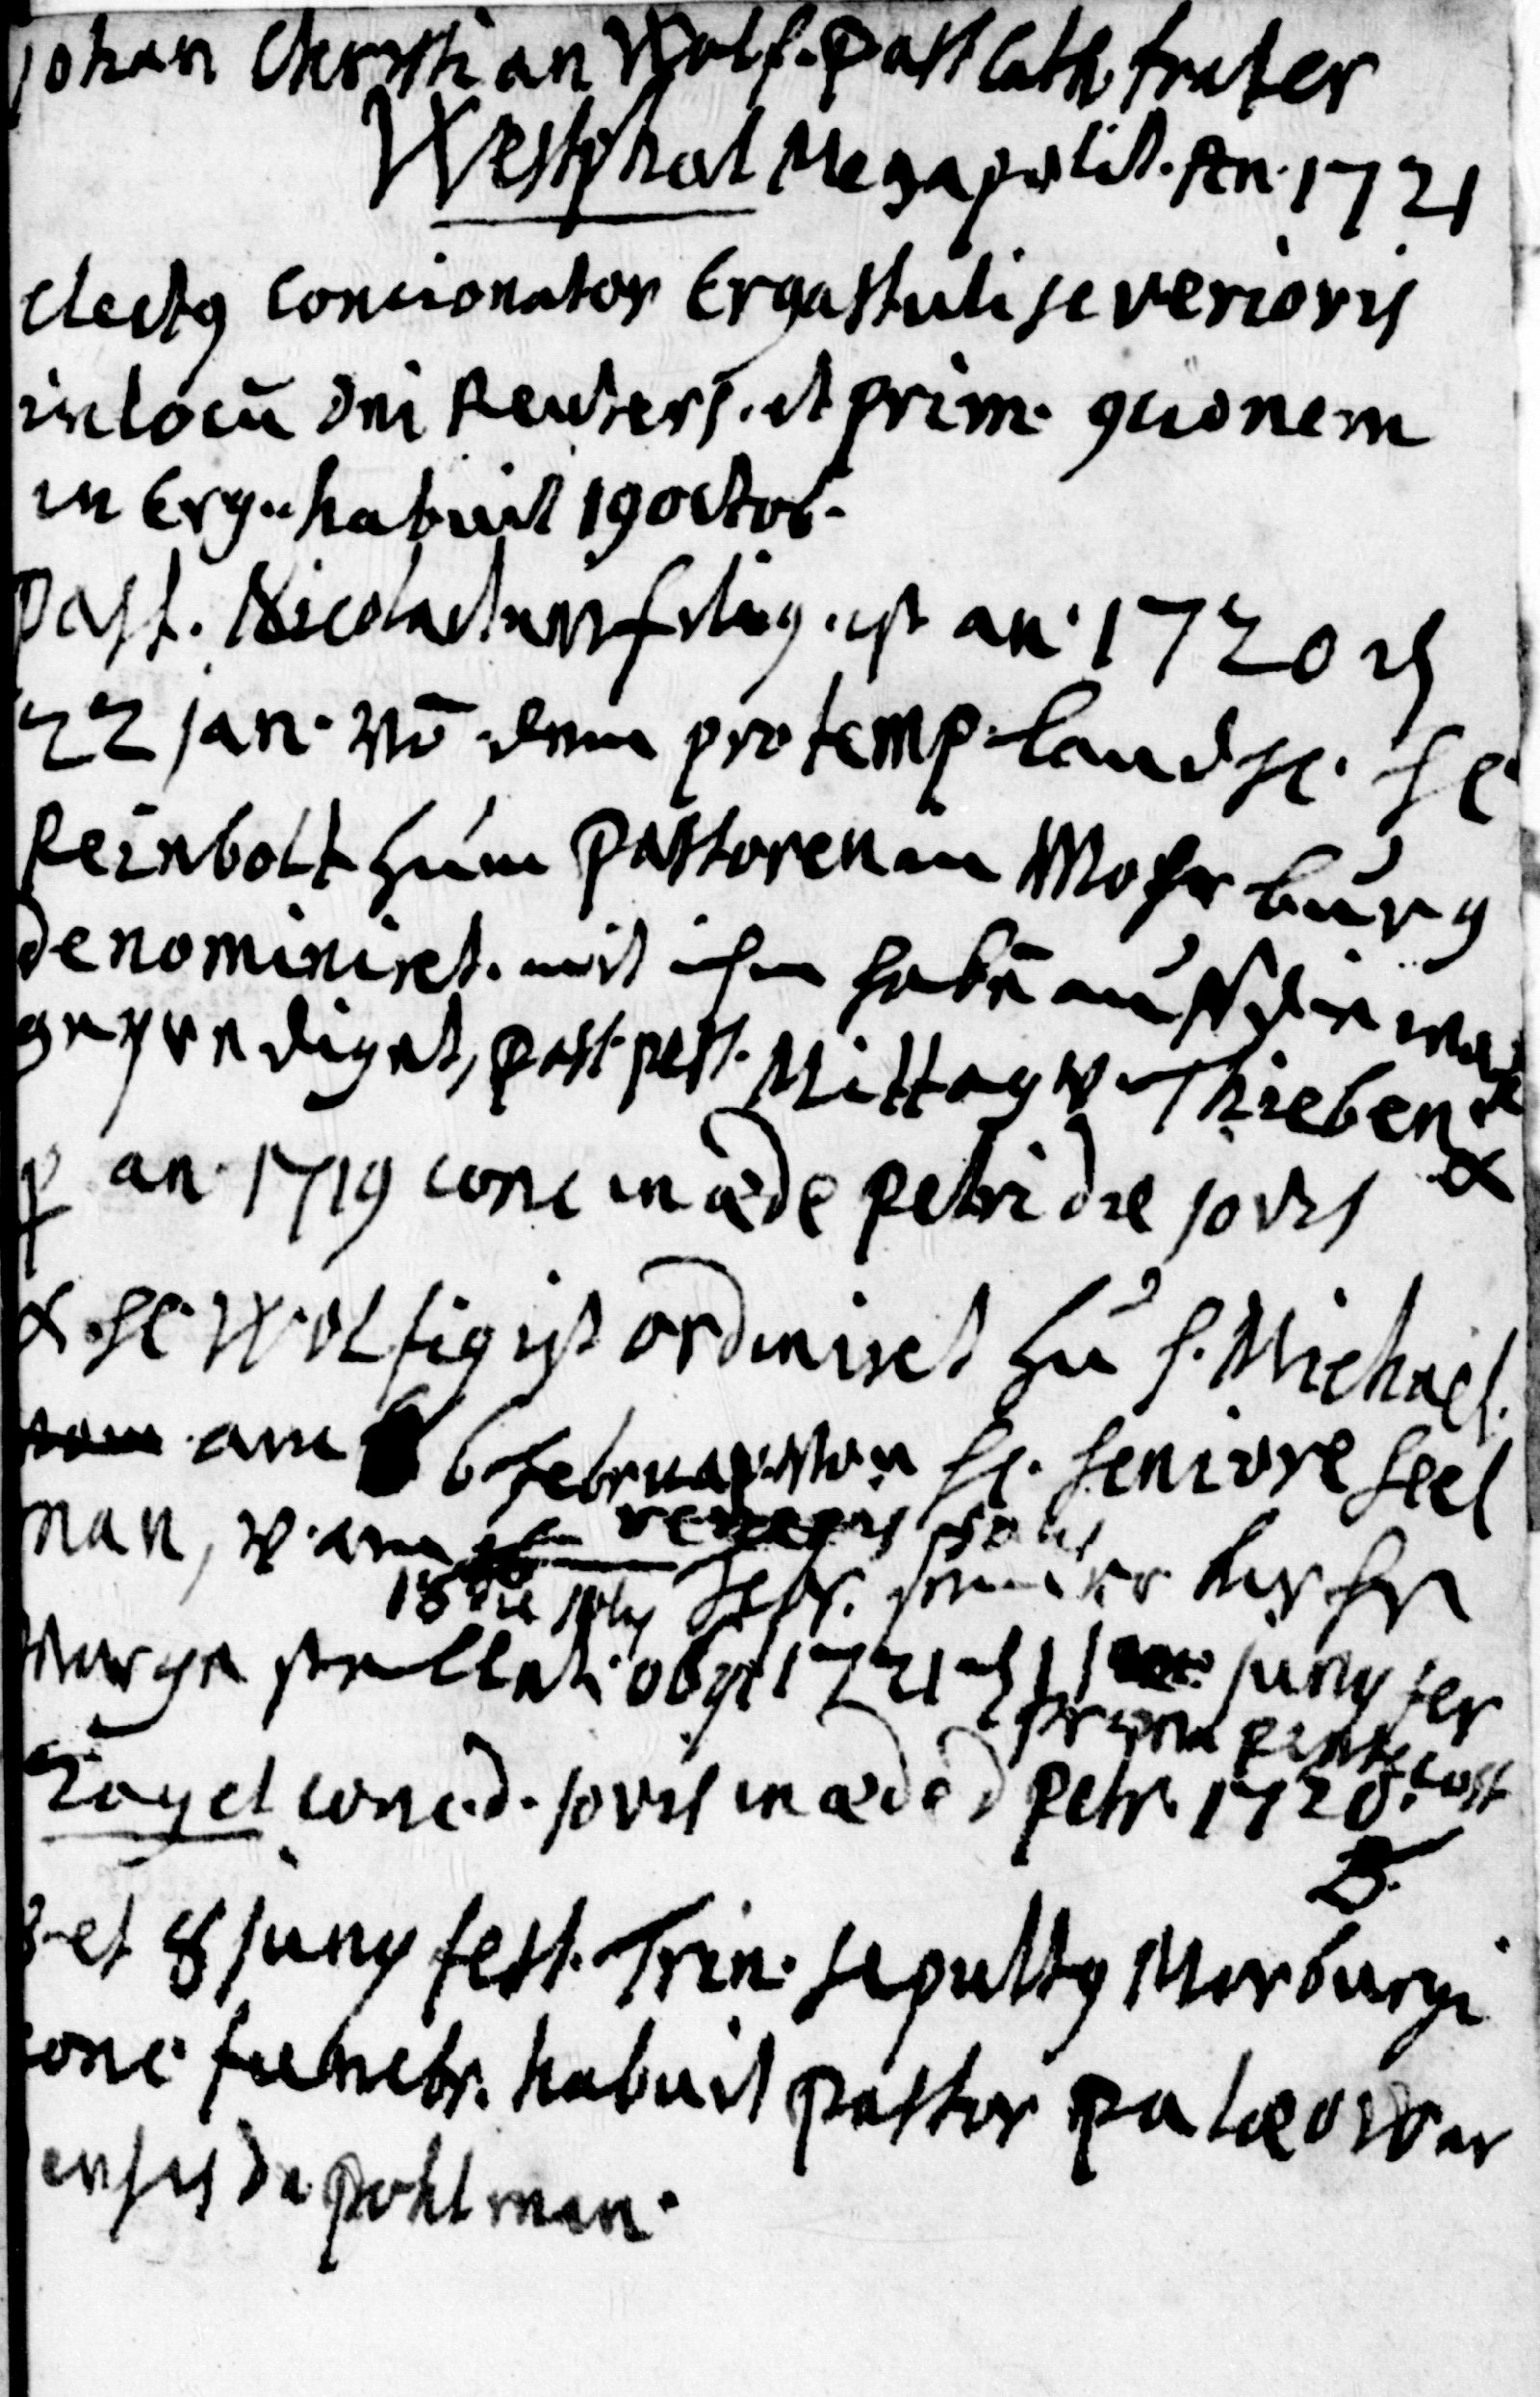 Johan Christian Wolf. Past Cath. frater
Westphal Megapolit. An. 1721
electus Concionator Ergastuli severioris
in locū Dni Reuters. et prim. concionem
in Erg. habuit 19 octob.
Past. Nicolai filius. ist an. 1720 d
22 Jan. vō dem pro temp. Landh. H.
Reinbolt zum Pastoren in Mohrburg
denominiret. mit ihm habē auff die wal
geprediget, Past. pest. Mittag v. Thieben
an. 1719 conc in æde Petri die jovis α
α H. Wolfig ist ordiniret zu S. Michael.
am 6 Februar. von H. Seniore Seel
man, v. am
18 die Febr.
Burgē obijt 1721 d 1 juny fer
prima pentecost
Zögel conc. d. jovis in æde d Petri 1720.
B.
B. et 8 juny fest. Trin. sepultus Morburgi
conc funebr. habuit pastor palæowar
ensis dn Pohlman.